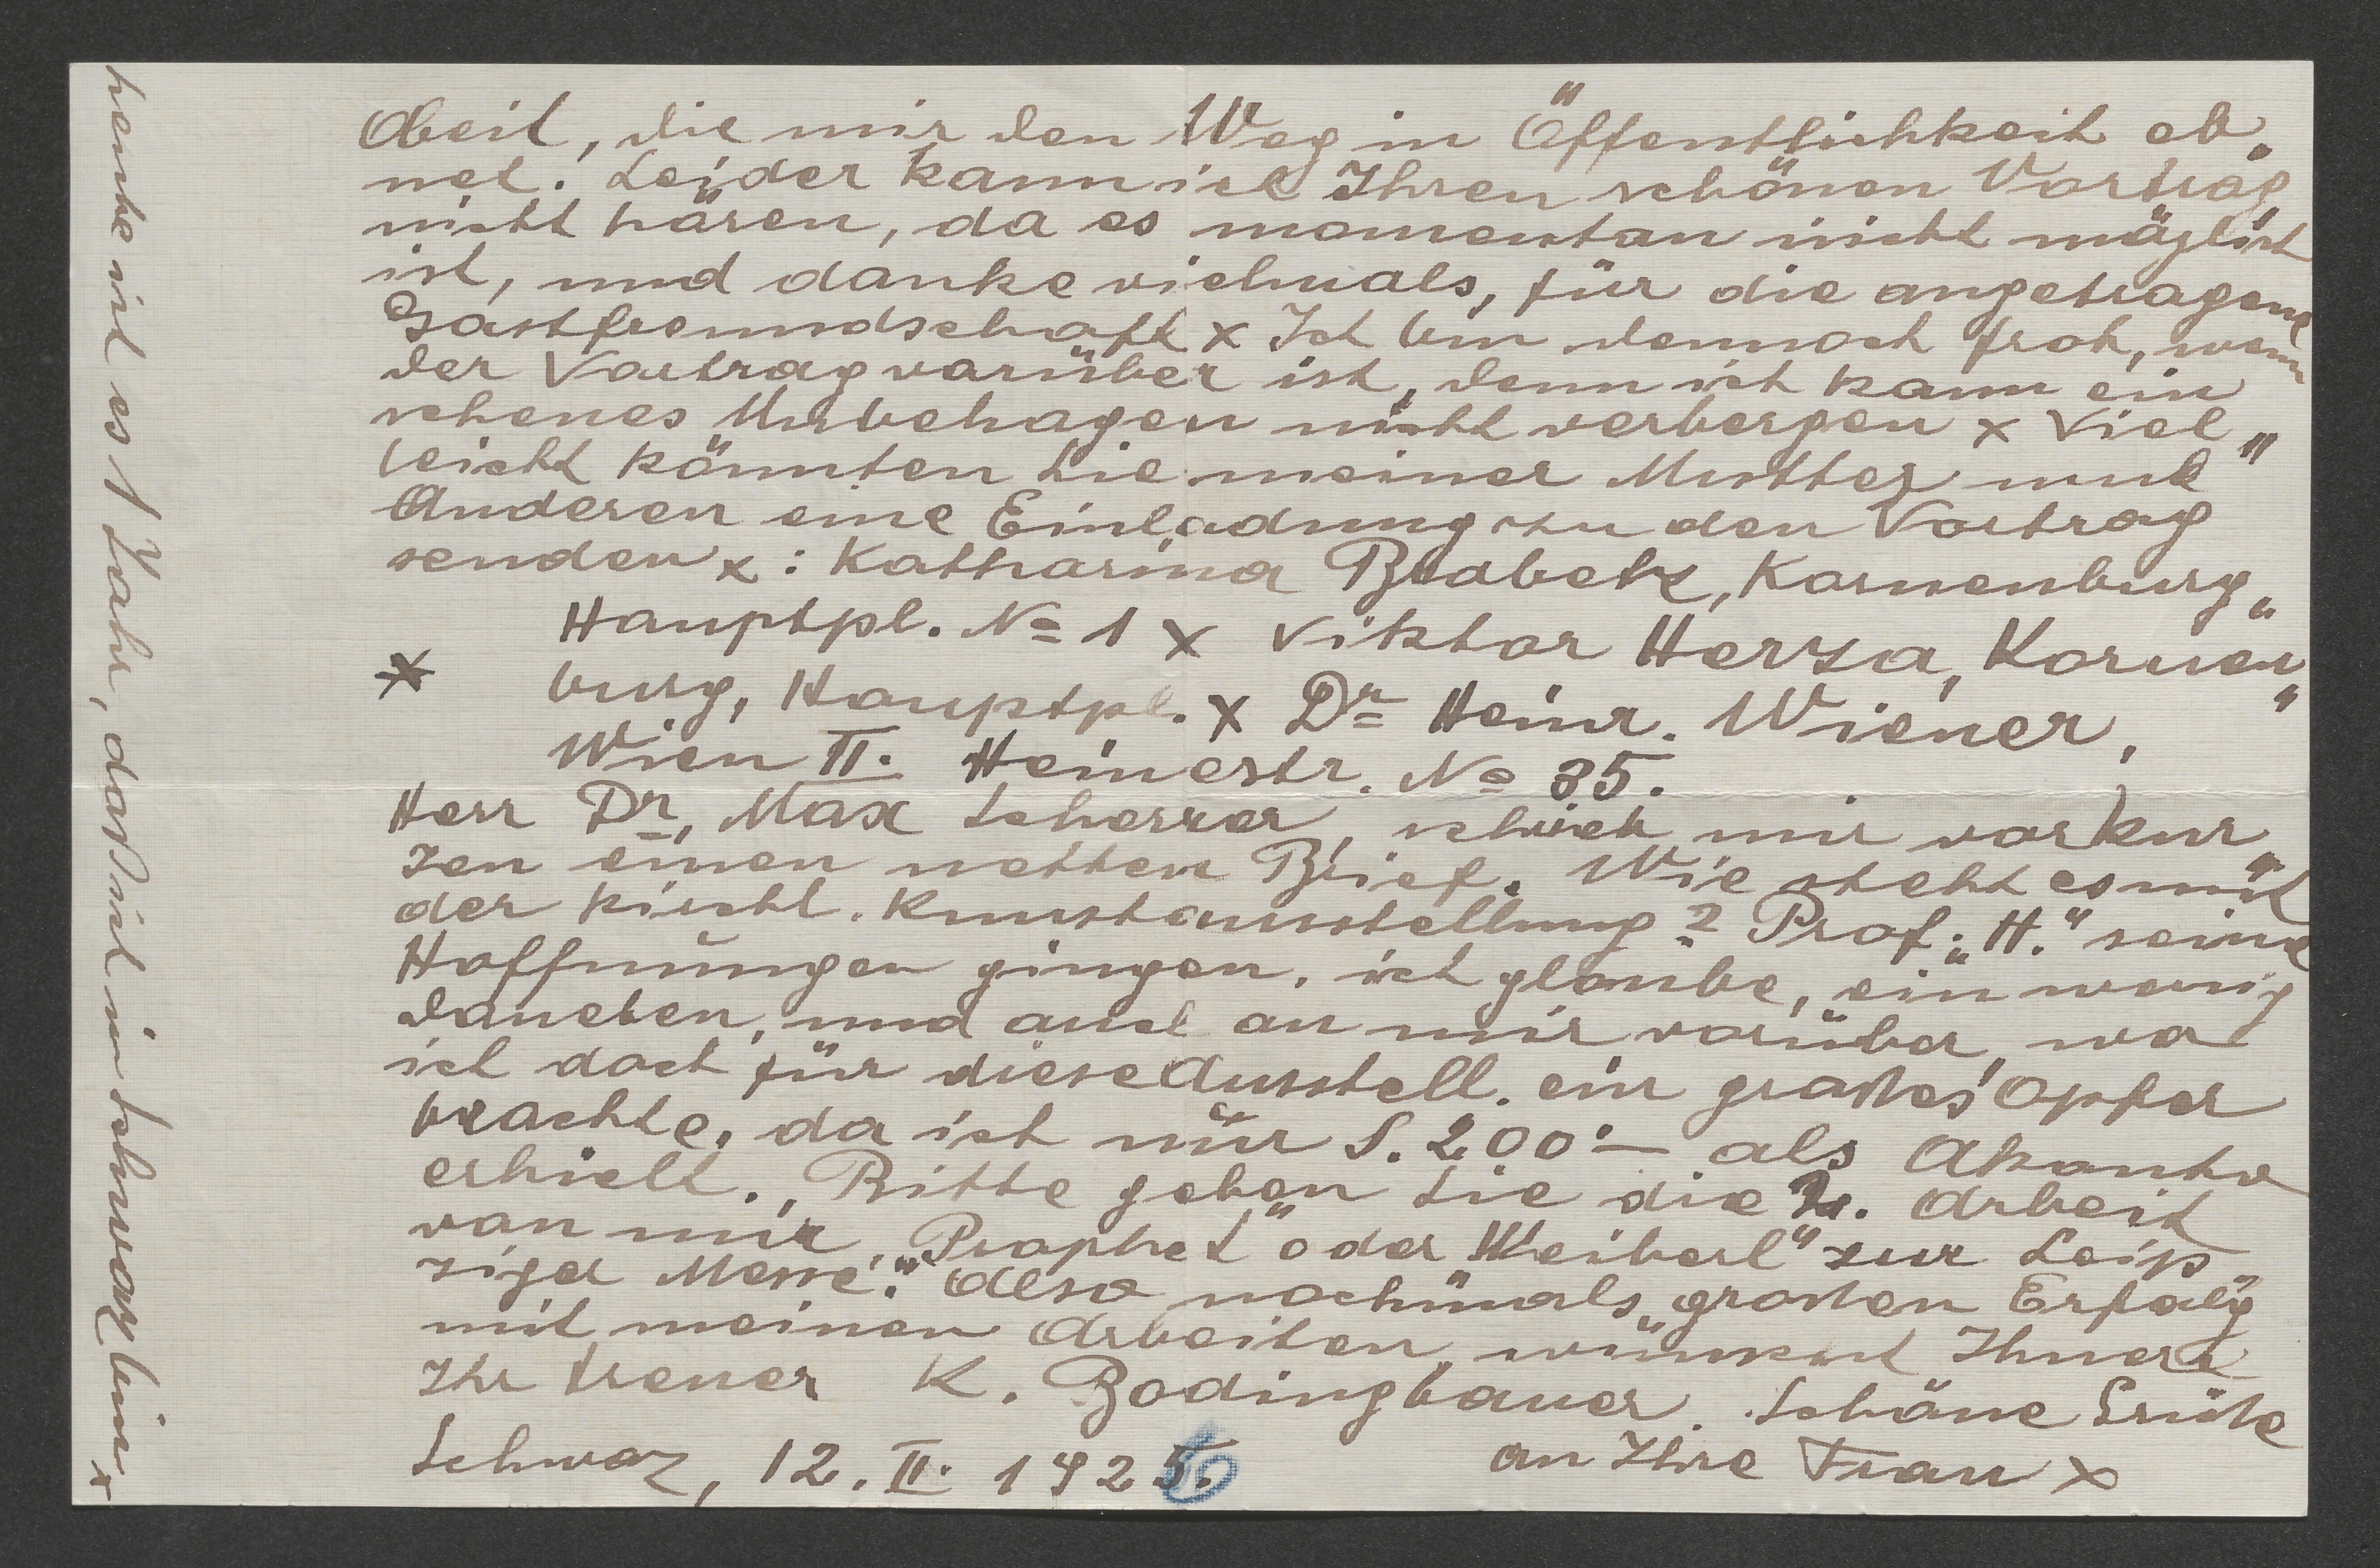 Arbeit, die mir den Weg in Öffentlichkeit eb„
net. Leider kann ich Ihren schönen Vortrag
nicht hören, da es momentan nicht möglich
ist, und danke vielmals, für die angetragene
Gastfreundschaft x Ich bin dennoch froh, wenn
der Vortrag vorüber ist, denn ich kann ein
Unbehagen nicht verbergen x Viel„
leicht könnten Sie meiner Mutter und
Anderen eine Einladung zu den Vortrag
senden x : Katharina Brabetz, Korneuburg„
Hauptpl. No 1 x Viktor Herza, Korneu„
x burg, Hauptpl. x Dr Heinr. Wiener,
Wien II. Heinestr. No 35.
Herr Dr, Max Scherrer, schrieb mir vor kur„
zen einen netten Brief. Wie steht es mit
der kirchl. Kunstausstellung? Prof. „H." seine
Hoffnungen gingen, ich glaube, ein wenig
daneben, und auch an mir vorüber, wo
ich doch für diese Ausstell. ein großes Opfer
brachte, da ich nur S. 200·— als Akonto
erhielt. Bitte geben Sie die Arbeit
von mir, „Prophet" oder „Weiberl" zur Leip„
ziger Messe." Also nochmals, großen Erfolg
mit meinen Arbeiten, wünscht Ihnen
Ihr treuer K. Bodingbauer. Schöne Grüße
an Ihre Frau x
Schwaz, 12. II. 1925.
heute wird es 1 Jahr, daß ich in Schwaz bin x